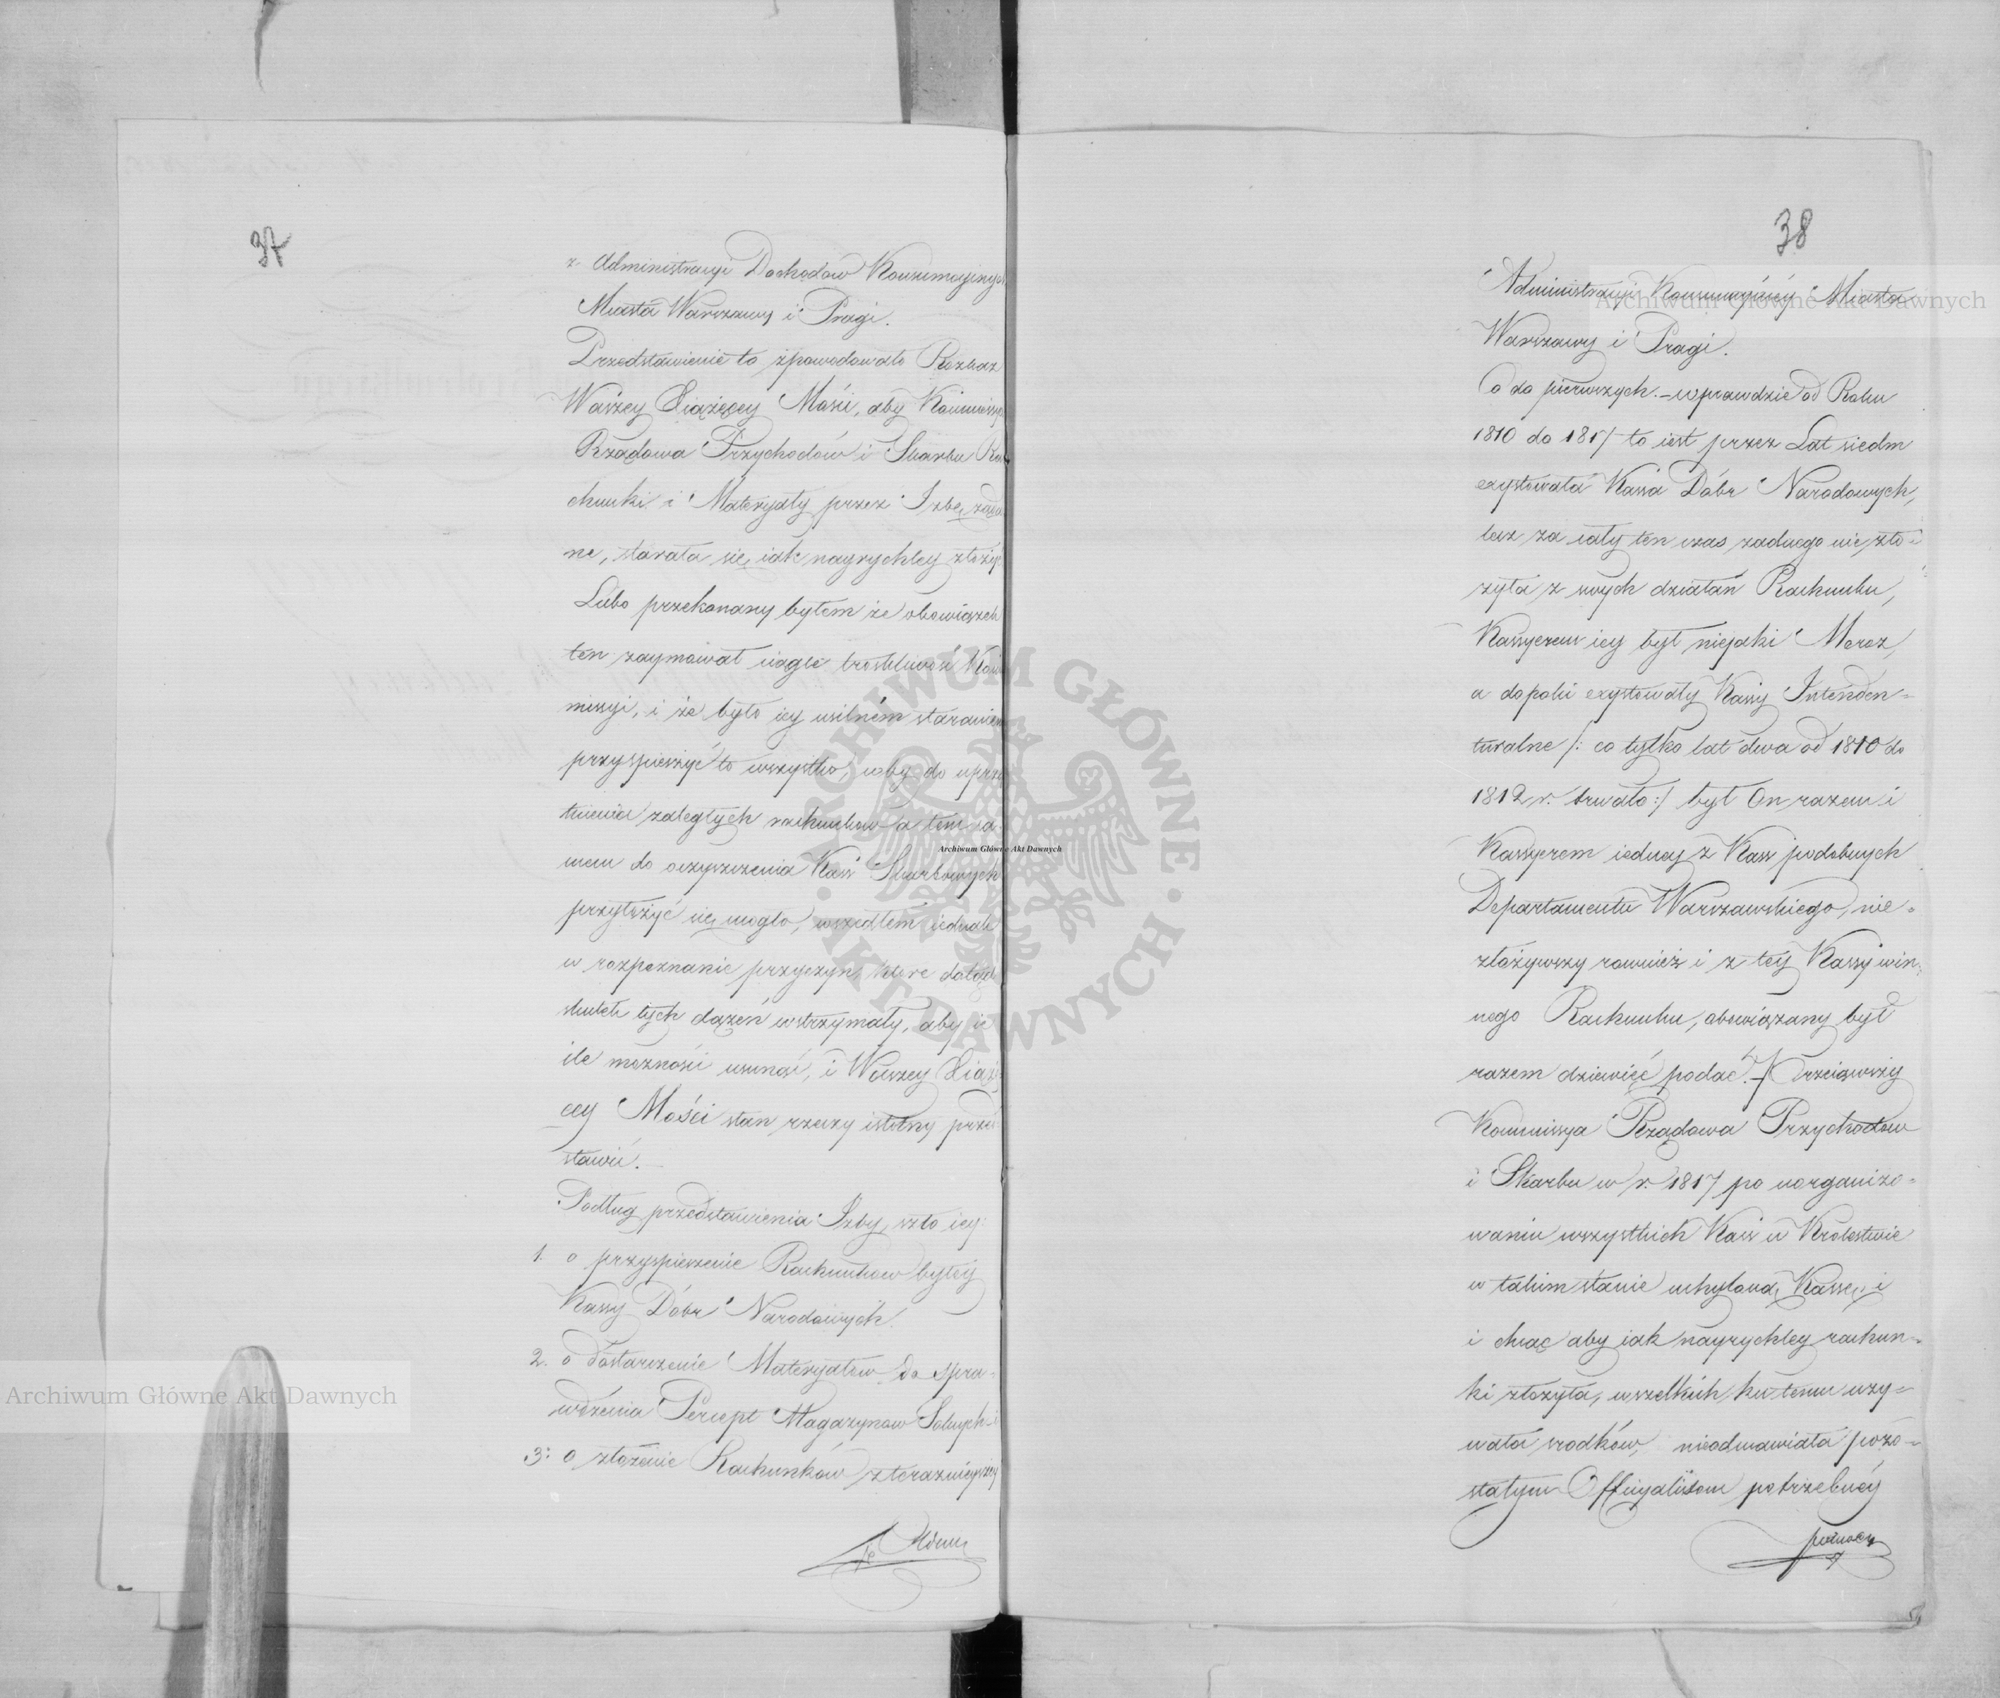 37
z Administracyi Dochodów Konsumcyinych
Miasta Warszawy i Pragi.
Przedstawienie to spowodowało Rozkaz
Waszey Xiążęcey Mości, aby Kommissya
Rządowa Przychodów i Skarbu Ra
chunki i Materyały przez Izbę żąda
ne, starała się iak nayrychley złożyć
Lubo przekonany byłem że obowiązek
ten zaymował ciągle troskliwość Kom
missyi, i że było iey usilnem staraniem
przyspieszyć to wszystko, coby do uprzą
tnienia zaległych rachunków a tem sa
mem do oczyszczenia Kass Skarbowych
przyłożyć się mogło, wszedłem iednak
w rozpoznanie przyczyn, które dotąd
skutek tych dążeń wstrzymały, aby ie
ile możności usunąć, i Waszey Xiążę
cey Mości stan rzeczy istotny przed
stawić.
Podług przedstawienia Izby, szło iey:
1. o przyspieszenie Rachunków byłey
Kassy Dóbr Narodowych.
2. o dostarczenie Materyałów do spra-
wdzenia Percept Magazynów Solnych i
3: o złożenie Rachunków z teraznieyszey
Admi
38
Administracyi Konsumcyiney Miasta
Warszawy i Pragi.
Co do pierwszych. – wprawdzie od Roku
1810 do 1817 to iest przez Lat siedm
exystowała Kassa Dóbr Narodowych,
lecz za cały ten czas żadnego nie zło-
żyła z swych działań Rachunku,
Kassyerem iey był niejaki Moroz,
a dopoki exystowały Kassy Intenden-
turalne /: co tylko lat dwa od 1810 do
1812 r. trwało :/ był On razem i
Kassyerem iedney z Kass podobnych
Departamentu Warszawskiego, nie-
złożywszy rownież i z tey Kassy win-
nego Rachunku, obowiązany był
razem dziewięć podać. – Przeiąwszy
Kommissya Rządowa Przychodów
i Skarbu w r. 1817 po uorganizo-
waniu wszystkich Kass w Krolestwie
w takim stanie uchyloną Kassę i
i chcąc aby iak nayrychley rachun-
ki złożyła, wszelkich ku temu uży-
wała srodków, nieodmawiała pozo-
stałym Officyalistom potrzebney
pomocy
Archiwum Główne Akt Dawnych
Archiwum Główne Akt Dawnych
Archiwum Główne Akt Dawnych
ARCHIWUM GŁÓWNE · AKT DAWNYCH ·